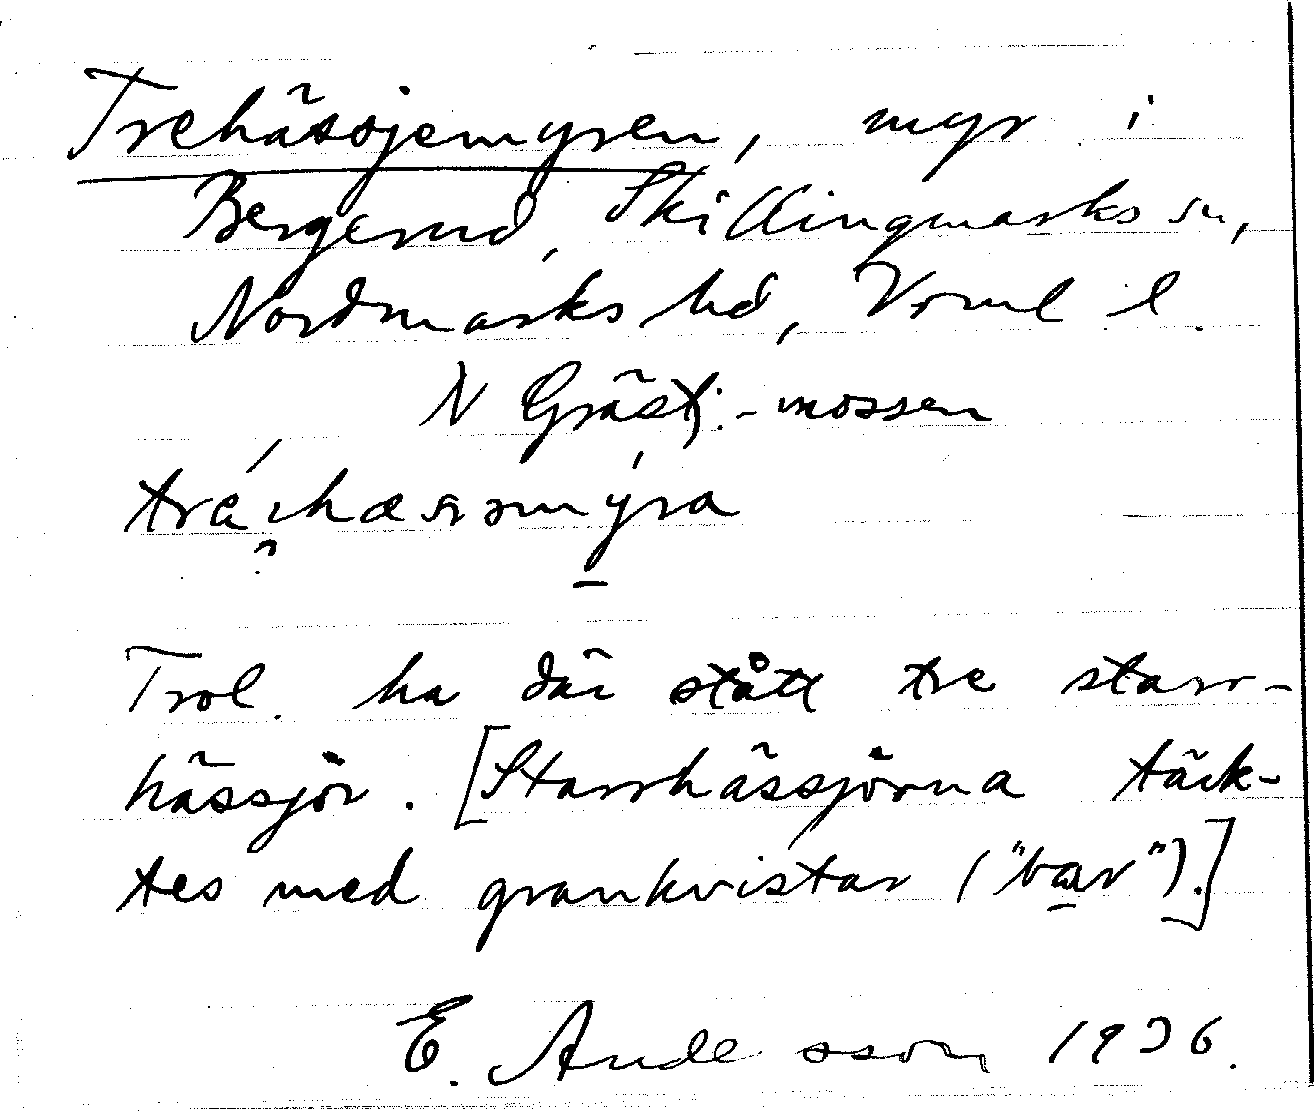 Trehässjemyren, myr i
Bergerud, Skillingmarks sn,
Nordmarks hd, Vrml l.
N Grästj.-mossen
Trol. ha där stått tre starr-
hässjör. [Starrhässjörna täck-
tes med grankvistar ("bar").]
E. Andersson 1936.